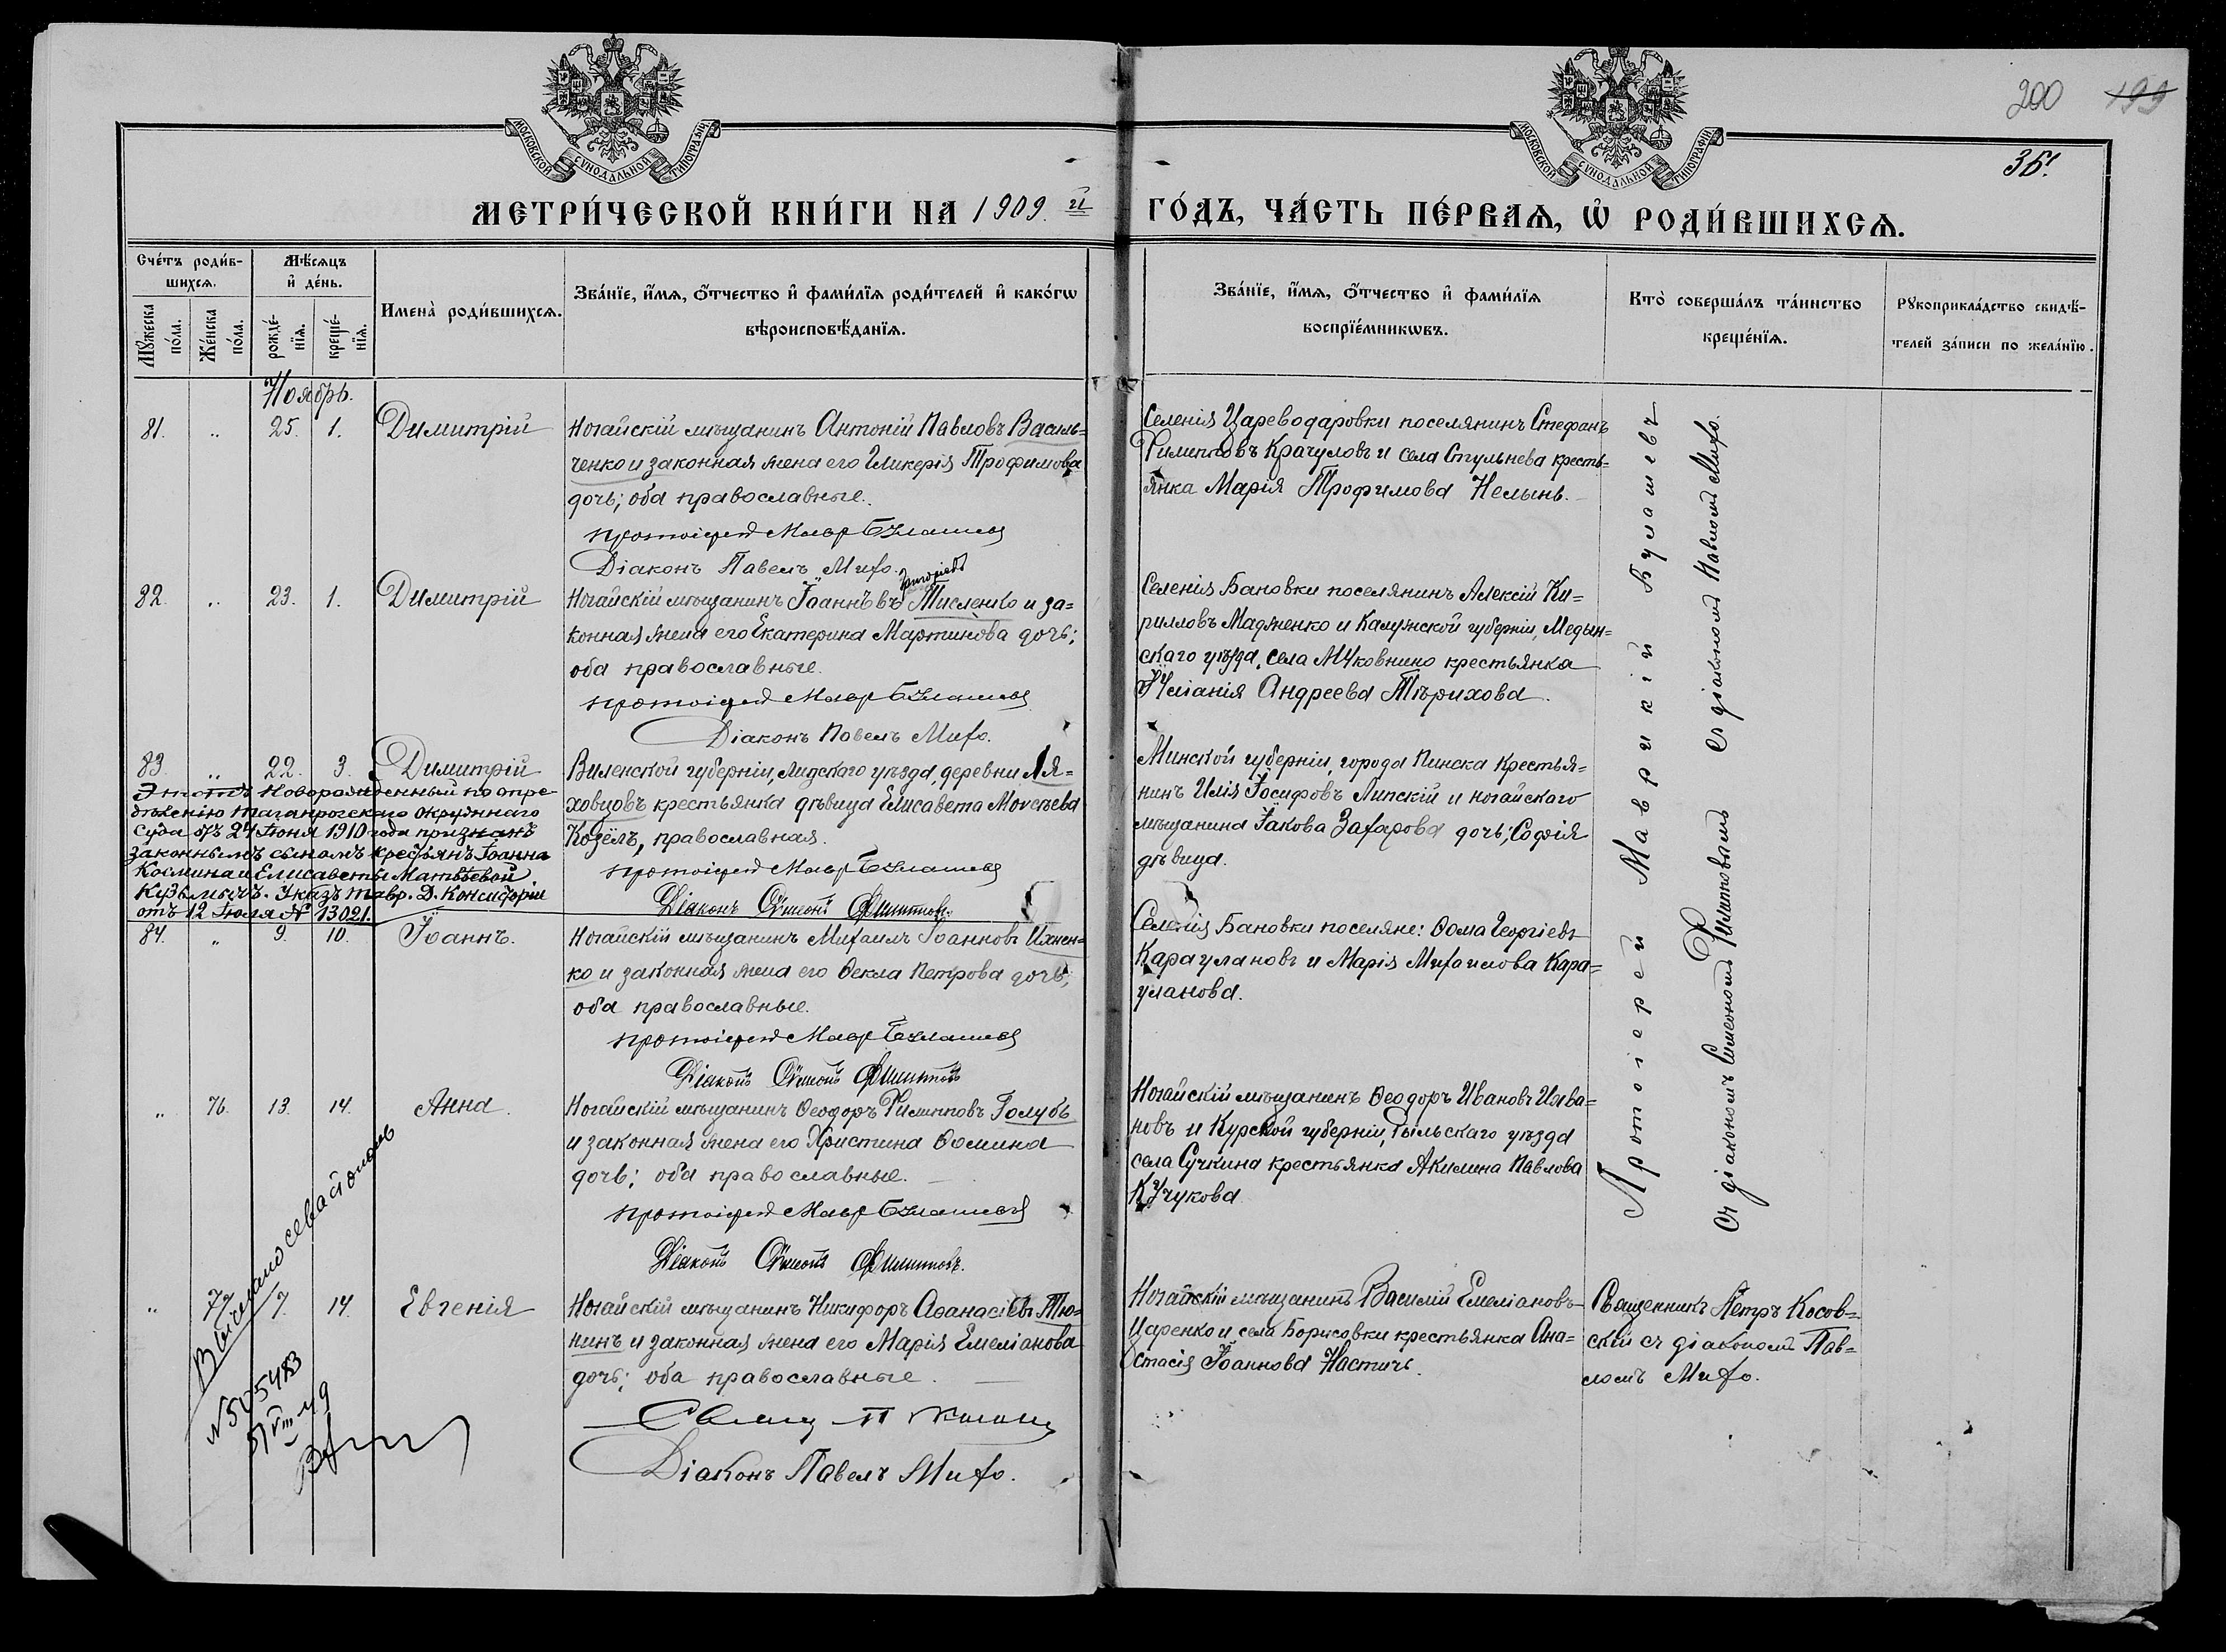 МОСКОВСКОЙ СУНОДАЛЬНОЙ ТИПОГРАФІИ
МОСКОВСКОЙ СУНОДАЛЬНОЙ ТИПОГРАФІИ
200 199
36.
МЕТРИ́ЧЕСКОЙ КНИ́ГИ НА 1909.й ГО́ДЪ, ЧА́СТЬ ПЕ́РВАѦ, Ѡ҆ РОДИ́ВШИХСѦ.
Сче́тъ роди́в-
шихсѧ.
Мѣ́сѧцъ
и҆ де́нь.
Мꙋ́жеска
по́ла.
Же́нска
по́ла.
рожде́-
нїѧ.
креще́-
нїѧ.
Имена̀ роди́вшихсѧ.
Зва́нїе, и҆́мѧ, ѻ҆́тчество и҆ фами́лїѧ роди́телей и҆ како́гѡ
вѣроисповѣ́данїѧ.
Зва́нїе, и҆́мѧ, ѻ҆́тчество и҆ фами́лїѧ
воспрїе́мникѡвъ.
Кто̀ соверша́лъ та́инство
креще́нїѧ.
Рꙋкоприкла́дство свидѣ́-
телей за́писи по жела́нїю.
Ноябрь.
81. „ 25. 1. Димитрій
Ногайскій мѣщанинъ Антоній Павловъ Василь=
ченко и законная жена его Гликерія Трофимова
дочь; оба православные.
протоіерей Мавр Булашевъ
Діаконъ Павелъ Михо.
Селенія Цареводаровки поселянинъ Стефанъ
Филипповъ Крачуловъ и села Стульнева кресть=
янка Марія Трофимова Нелынь.
82. „ 23. 1. Димитрій
Ногайскій мѣщанинъ Іоаннъ Мисленко и за=
конная жена его Екатерина Мартинова дочь;
оба православные.
протоіерей Мавр Булашевъ
Діаконъ Павелъ Михо.
Селенія Бановки поселянинъ Алексій Ки=
рилловъ Мадженко и Калужской губерніи, Медын=
скаго уѣзда, села Мчковнино крестьянка
Іуліанія Андреева Тѣрихова.
83. „ 22. 3. Димитрій
Этотъ новорожденный по опре-
дѣленію Таганрогскаго Окружнаго
Суда отъ 24 Іюня 1910 года признанъ
законнымъ сыномъ крестьянъ Іоанна
Космина и Елисаветы Матвѣевой
Кузьмичъ. Указъ Тавр. Д. Консисторіи
отъ 12 Іюля № 13021.
Виленской губерніи, Лидскаго уѣзда, деревни Ля=
ховцовъ крестьянка дѣвица Елисавета Моисѣева
Козелъ, православная.
протоіерей Мавр Булашевъ
Діаконъ Сѵмеонъ Филипповъ
Минской губерніи, города Пинска крестья=
нинъ Илія Іосифовъ Липскій и ногайскаго
мѣщанина Іакова Захарова дочь, Софія
дѣвица.
84. „ 9. 10. Іоаннъ.
Ногайскій мѣщанинъ Михаилъ Іоанновъ Ихнен=
ко и законная жена его Ѳекла Петрова дочь;
оба православные.
протоіерей Мавр Булашевъ
Діаконъ Сѵмеонъ Филипповъ
Селенія Бановки поселяне: Ѳома Георгіевъ
Карауланов и Марія Михаилова Кара=
уланова.
„ 76. 13. 14. Анна.
Ногайскій мѣщанинъ Ѳеодоръ Филипповъ Голубь
и законная жена его Христина Ѳомина
дочь; оба православные.
протоіерей Мавр Булашевъ
Діаконъ Сѵмеонъ Филипповъ.
Ногайскій мѣщанинъ Ѳеодоръ Ивановъ Ива=
новъ и Курской губерніи, Рыльскаго уѣзда
села Сучкина крестьянка Акилина Павлова
Кучукова
„ 77. 7. 14. Евгенія
Ногайскій мѣщанинъ Никифоръ Аѳанасіевъ Тю=
нинъ и законная жена его Марія Емеліанова
дочь; оба православные.
Діаконъ Павелъ Михо.
Ногайскій мѣщанинъ Василій Емеліановъ
Царенко и села Борисовки крестьянка Ана=
стасія Іоаннова Настичъ.
Священникъ Петръ Косов=
скій съ діакономъ Пав=
ломъ Михо.
Протоіерей Маврикій Булашевъ
Съ діакономъ Павломъ Михо.
Съ діакономъ Симеономъ Филипповымъ
№ 505483